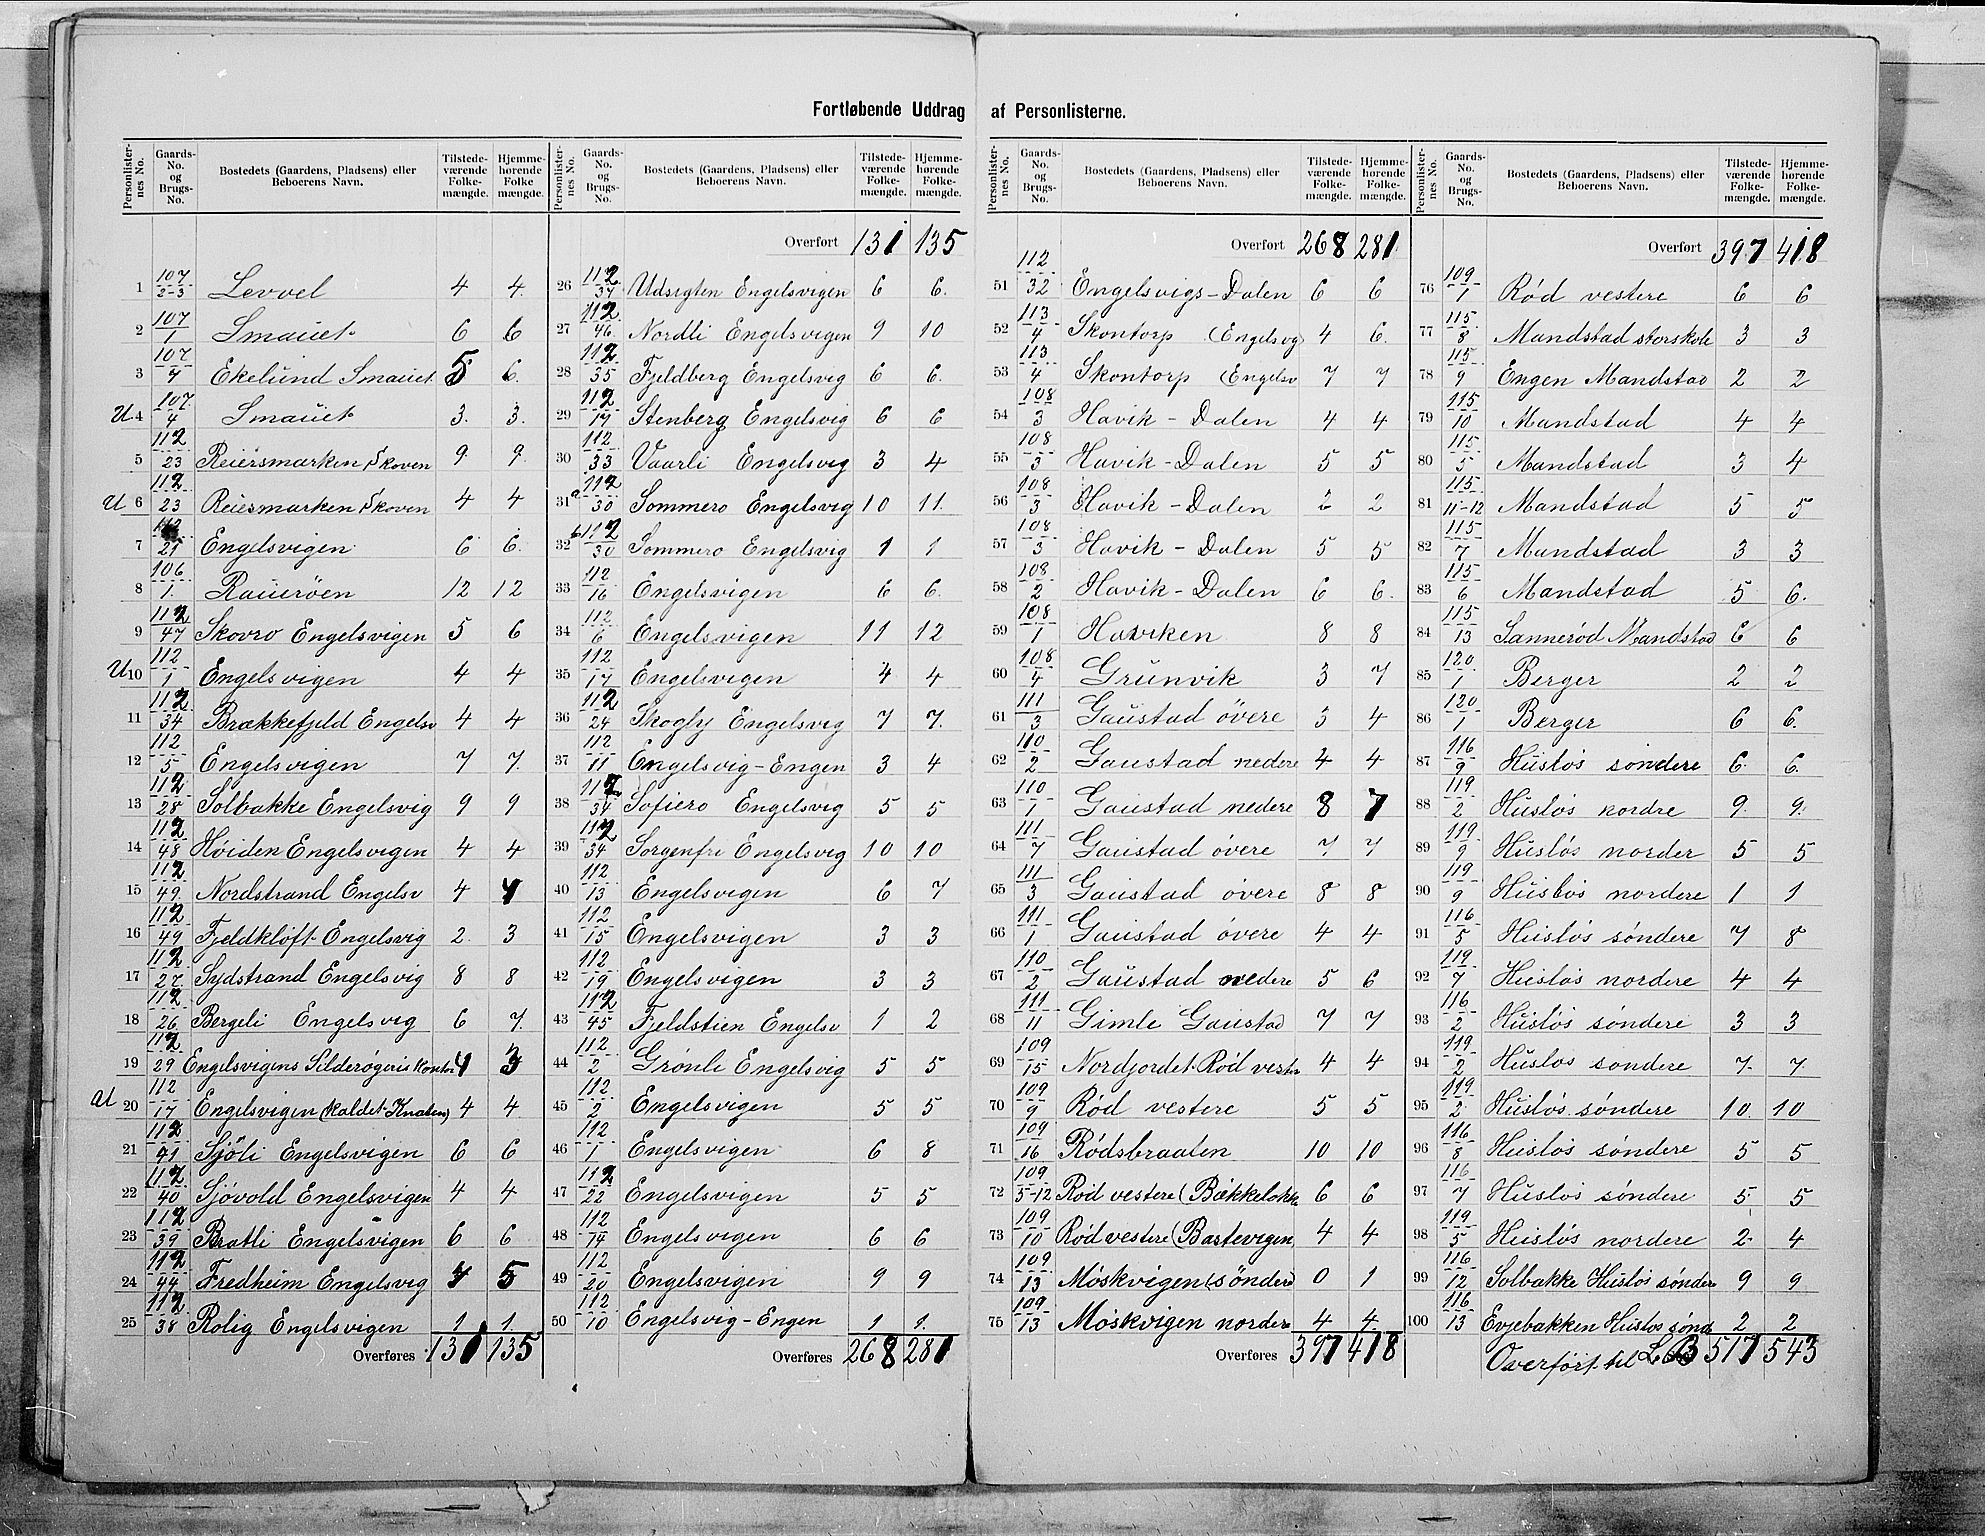 Fortløbende Uddrag af Personlisterne.
Personlister-nes No. Gaards-No. og Brugs-No. Bostedets (Gaardens, Pladsens) eller Beboerens Navn. Tilstede-værende Folke-mængde. Hjemme-hørende Folke mængde.
1 107/2-3 Levvel 4 4.
2 107/1 Smauet 6 6
3 107/4 Ekelund Smauet 5 6.
U 4 107/4 Smauet 3. 3.
5 112/23 Reiersmarken, Skoven 9 9.
U 6 112/23 Reiesmarken Skoven 4 4
7 112/21 Engelsvigen 6 6.
8 106/1. Rauerøen 12 12
9 112/47 Skovro Engelsvigen 5 6
U 10 112/1 Engelsvigen 4 4
11 112/34 Brækkefjeld Engelsv 4 4
12 112/5 Engelsvigen 7 7.
13 112/28 Solbakke Engelsvig 9 9
14 112/48 Høiden Engelsvigen 4 4
15 112/49. Nordstrand Engelsv 4 4
16 112/49 Fjeldkløft Engelsvig 2. 3
17 112/27 Sydstrand Engelsvig 8 8
18 112/26 Bergeli Engelsvig 6 7.
19 112/29 Engelsvigens Silderøgeris Kontor 4 3
U 20 112/17 Engelsvigen (kaldet Knaten) 4 4
21 112/41 Sjöli Engelsvigen 6 6
22 112/40 Sjövold Engelsvigen 4 4
23 112/39 Bratli Engelsvigen 6 6
24 112/44 Fredheim Engelsvig 4 5
25 112/38 Rolig Engelsvigen 1 1.
Overføres 131 135
Personlister-nes No. Gaards-No. og Brugs-No. Bostedets (Gaardens, Pladsens) eller Beboerens Navn. Tilstede-værende Folke-mængde. Hjemme-hørende Folke-mængde.
Overført 131 135
26 112/37 Udsigten Engelsvigen 6 6.
27 112/46 Nordli Engelsvigen 9 10
28 112/35 Fjeldberg Engelsvig 6 6.
29 112/17 Stenberg Engelsvig 6 6
30 112/33 Vaarli Engelsvig 3 4
31 a 112/30 Sommero Engelsvig 10 11.
32 b 112/30 Sommero Engelsvig 1 1
33 112/16 Engelsvigen 6 6.
34 112/6 Engelsvigen 11 12
35 112/17 Engelsvigen 4 4
36 112/24 Skogly Engelsvig 7 7.
37 112/11 Engelsvig-Engen 3 4
38 112/34 Sofiero Engelsvig 5 5
39 112/34 Sorgenfri Engelsvig 10 10
40 112/13 Engelsvigen 6 7
41 112/15 Engelsvigen 3 3
42 112/19 Engelsvigen 3 3
43 112/45 Fjeldstien Engelsv 1 2
44 112/2 Grønli Engelsvig 5 5
45 112/2 Engelsvigen 5 5
46 112/1 Engelsvigen 6 8
47 112/22 Engelsvigen 5 5
48 112/14 Engelsvigen 6 6
49 112/20 Engelsvigen 9 9
50 112/10 Engelsvig-Engen 1 1.
Overføres 268 281
Personlister-nes No. Gaards-No. og Brugs-No. Bostedets (Gaardens, Pladsens) eller Beboerens Navn. Tilstede-værende Folke-mængde. Hjemme-hørende Folke-mængde.
Overført 268 281
51 112/32 Engelsvigs-Dalen 6 6
52 113/4 Skontorp (Engelsvg 4 6.
53 113/4 Skontorp (Engelsv 7 7
54 108/3 Havik-Dalen 4 4
55 108/3 Havik-Dalen 5 5
56 108/3 Havik-Dalen 2 2
57 108/3 Havik-Dalen 5 5
58 108/2 Havik-Dalen 6 6.
59 108/1 Haviken 8 8
60 108/4 Grunvik 3 7
61 111/3 Gaustad övere 3 4
62 110/2 Gaustad nedere 4 4
63 110/1 Gaustad nedere 8 7
64 111/7 Gaustad övere 7 7
65 111/3 Gaustad övere 8 8
66 111/1 Gaustad övere 4 4
67 110/2 Gaustad nedere 5 6
68 111/11 Gimle Gaustad 7 7
69 109/15 Nordjordet Rød vestr 4 4
70 109/9 Rød vestere 5 5
71 109/16 Rødsbraaten 10 10
72 109/5-12 Rød vestere (Bækkeløkke 6 6
73 109/10 Rød vestere (Bastevigen, 4 4
74 109/13 Möskvigen (söndere) 0 1
75 109/13 Möskvigen nordere 4 4.
Overføres 397 418
Personlister-nes No. Gaards-No. og Brugs-No. Bostedets (Gaardens, Pladsens) eller Beboerens Navn. Tilstede-værende Folke-mængde. Hjemme-hørende Folke-mængde.
Overført 397 418
76 109/1 Rød vestere 6 6
77 115/8 Mandstad storskole 3 3
78 115/9 Engen Mandstad 2 2
79 115/10 Mandstad 4 4
80 115/5 Mandstad 3 4
81 115/11-12 Mandstad 5 5
82 115/7 Mandstad 3 3
83 115/6 Mandstad 5 6.
84 115/13 Sannerød Mandstad 6 6
85 120/1 Berger 2 2
86 120/1 Berger 6 6.
87 116/9 Husløs söndere 6. 6.
88 119/2 Husløs nordre 9. 9.
89 119/9 Husløs norder 5 5
90 119/9 Husløs nordere 1 1
91 116/5 Husløs söndere 7 8
92 119/7 Husløs nordere 4 4
93 116/2 Husløs söndere 3 3
94 119/2 Husløs søndere 7. 7
95 119/2 Husløs søndere 10. 10
96 116/8 Husløs søndere 5 5
97 116/7 Husløs søndere 5 5
98 119/5 Husløs nordere 2 4
99 116/12 Solbakke Husløs sönder 9 9
100 116/13 Evjebakken Husløs sønd 2 2
Overført til L B 517 543